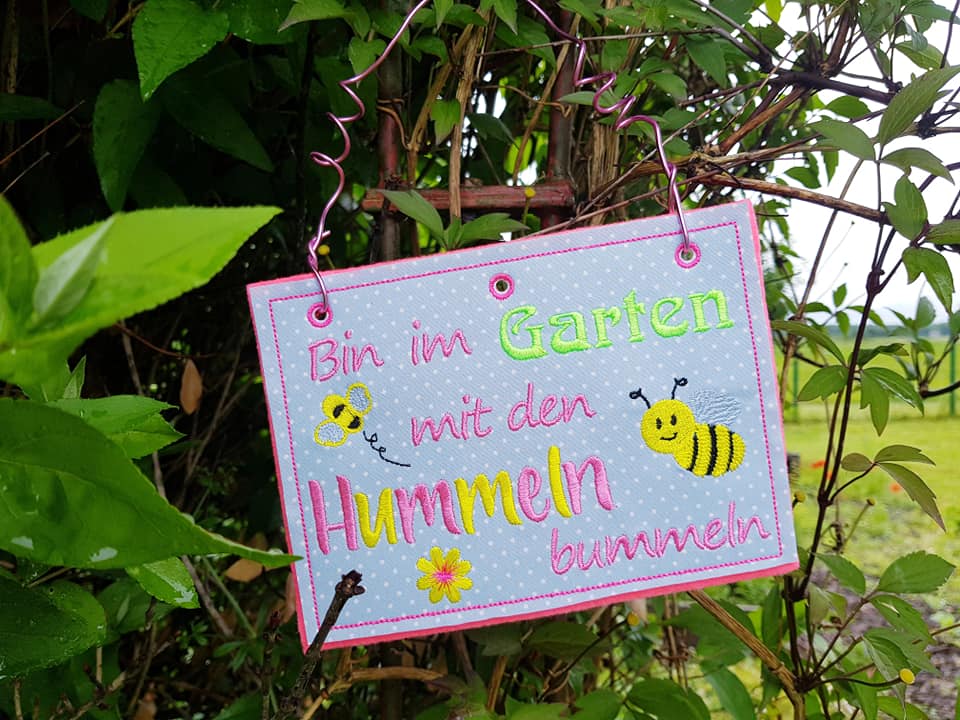 Bin im Garten
mit den
Hummeln
bummeln